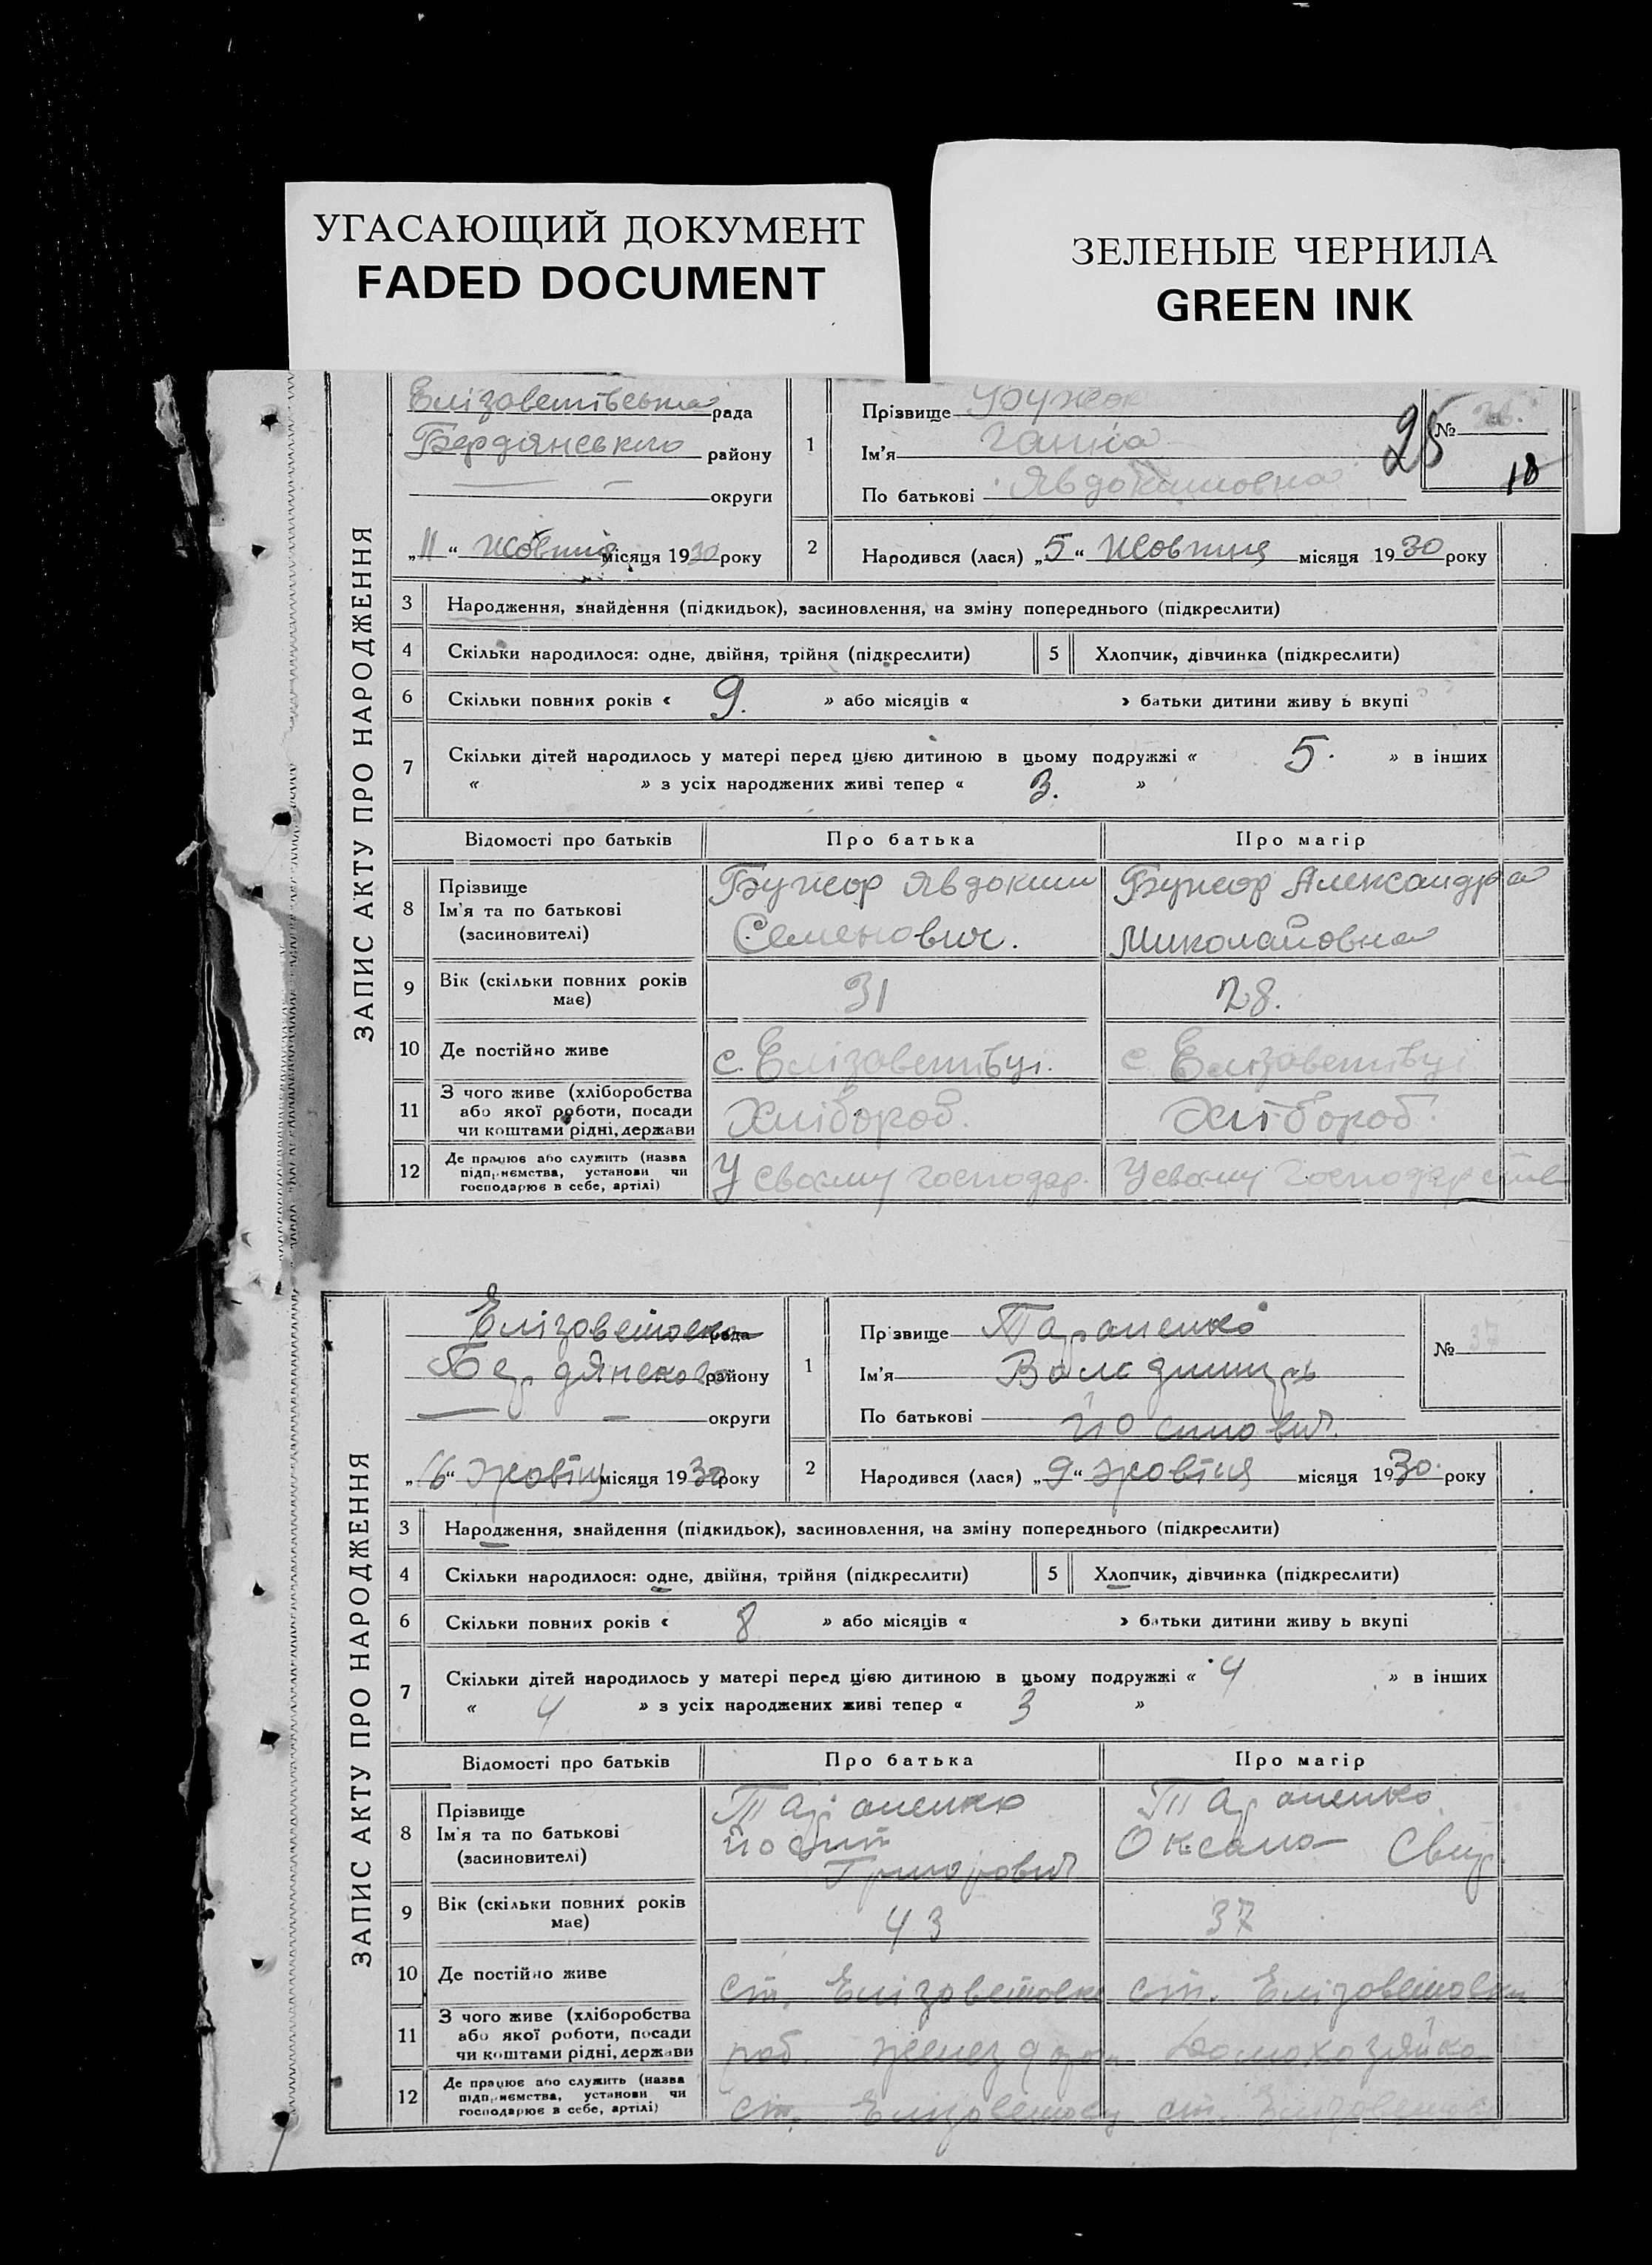 УГАСАЮЩИЙ ДОКУМЕНТ
FADED DOCUMENT
ЗЕЛЕНЫЕ ЧЕРНИЛА
GREEN INK
ЗАПИС АКТУ ПРО НАРОДЖЕННЯ
Елізаветівська рада
Бердянського району
— — округи
„11“ Жовтня місяця 1930 року
1
Прізвище Бужор
Ім'я Ганна
По батькові Явдокимовна
№
25
18
2
Народився (лася) „5“ Жовтня місяця 1930 року
3 Народження, знайдення (підкидьок), засиновлення, на зміну попереднього (підкреслити)
4 Скільки народилося: одне, двійня, трійня (підкреслити) 5 Хлопчик, дівчинка (підкреслити)
6 Скільки повних років « 9. » або місяців « » батьки дитини живу ь вкупі
7 Скільки дітей народилось у матері перед цією дитиною в цьому подружжі « 5. » в інших
« » з усіх народжених живі тепер « 3. »
Відомості про батьків Про батька Про магір
8 Прізвище
Ім'я та по батькові
(засиновителі)
Бужор Явдоким
Семенович.
Бужор Александра
Миколаївна
9 Вік (скільки повних років має) 31 28.
10 Де постійно живе с. Елізаветівці. с. Елізаветівці
11 З чого живе (хліборобства
або якої роботи, посади
чи коштами рідні, держави
Хлібороб. Хлібороб.
12 Де працює або служить (назва
підприємства, установи чи
господарює в себе, артілі)
У своєму господар. У своєму господарстве
ЗАПИС АКТУ ПРО НАРОДЖЕННЯ
Елізаветовска рада
Бердянского району
— — округи
„16“ жовтня місяця 1930 року
1
Пр звище Тараненко
Ім'я Володимирь
По батькові Йосипович
№ 37
2
Народився (лася) „9“ жовтня місяця 1930. року
3 Народження, знайдення (підкидьок), засиновлення, на зміну попереднього (підкреслити)
4 Скільки народилося: одне, двійня, трійня (підкреслити) 5 Хлопчик, дівчинка (підкреслити)
6 Скільки повних років « 8 » або місяців « » батьки дитини живу ь вкупі
7 Скільки дітей народилось у матері перед цією дитиною в цьому подружжі « 4 » в інших
« 4 » з усіх народжених живі тепер « 3 »
Відомості про батьків Про батька Про магір
8 Прізвище
Ім'я та по батькові
(засиновителі)
Тараненко
Йосип
Григорович
Тараненко
Оксана Свир.
9 Вік (скільки повних років має) 43 37
10 Де постійно живе ст. Елізаветовка ст. Елізаветовка
11 З чого живе (хліборобства
або якої роботи, посади
чи коштами рідні, держави
роб. желез дорог Домохозяйка
12 Де працює або служить (назва
підприємства, установи чи
господарює в себе, артілі)
ст. ст.